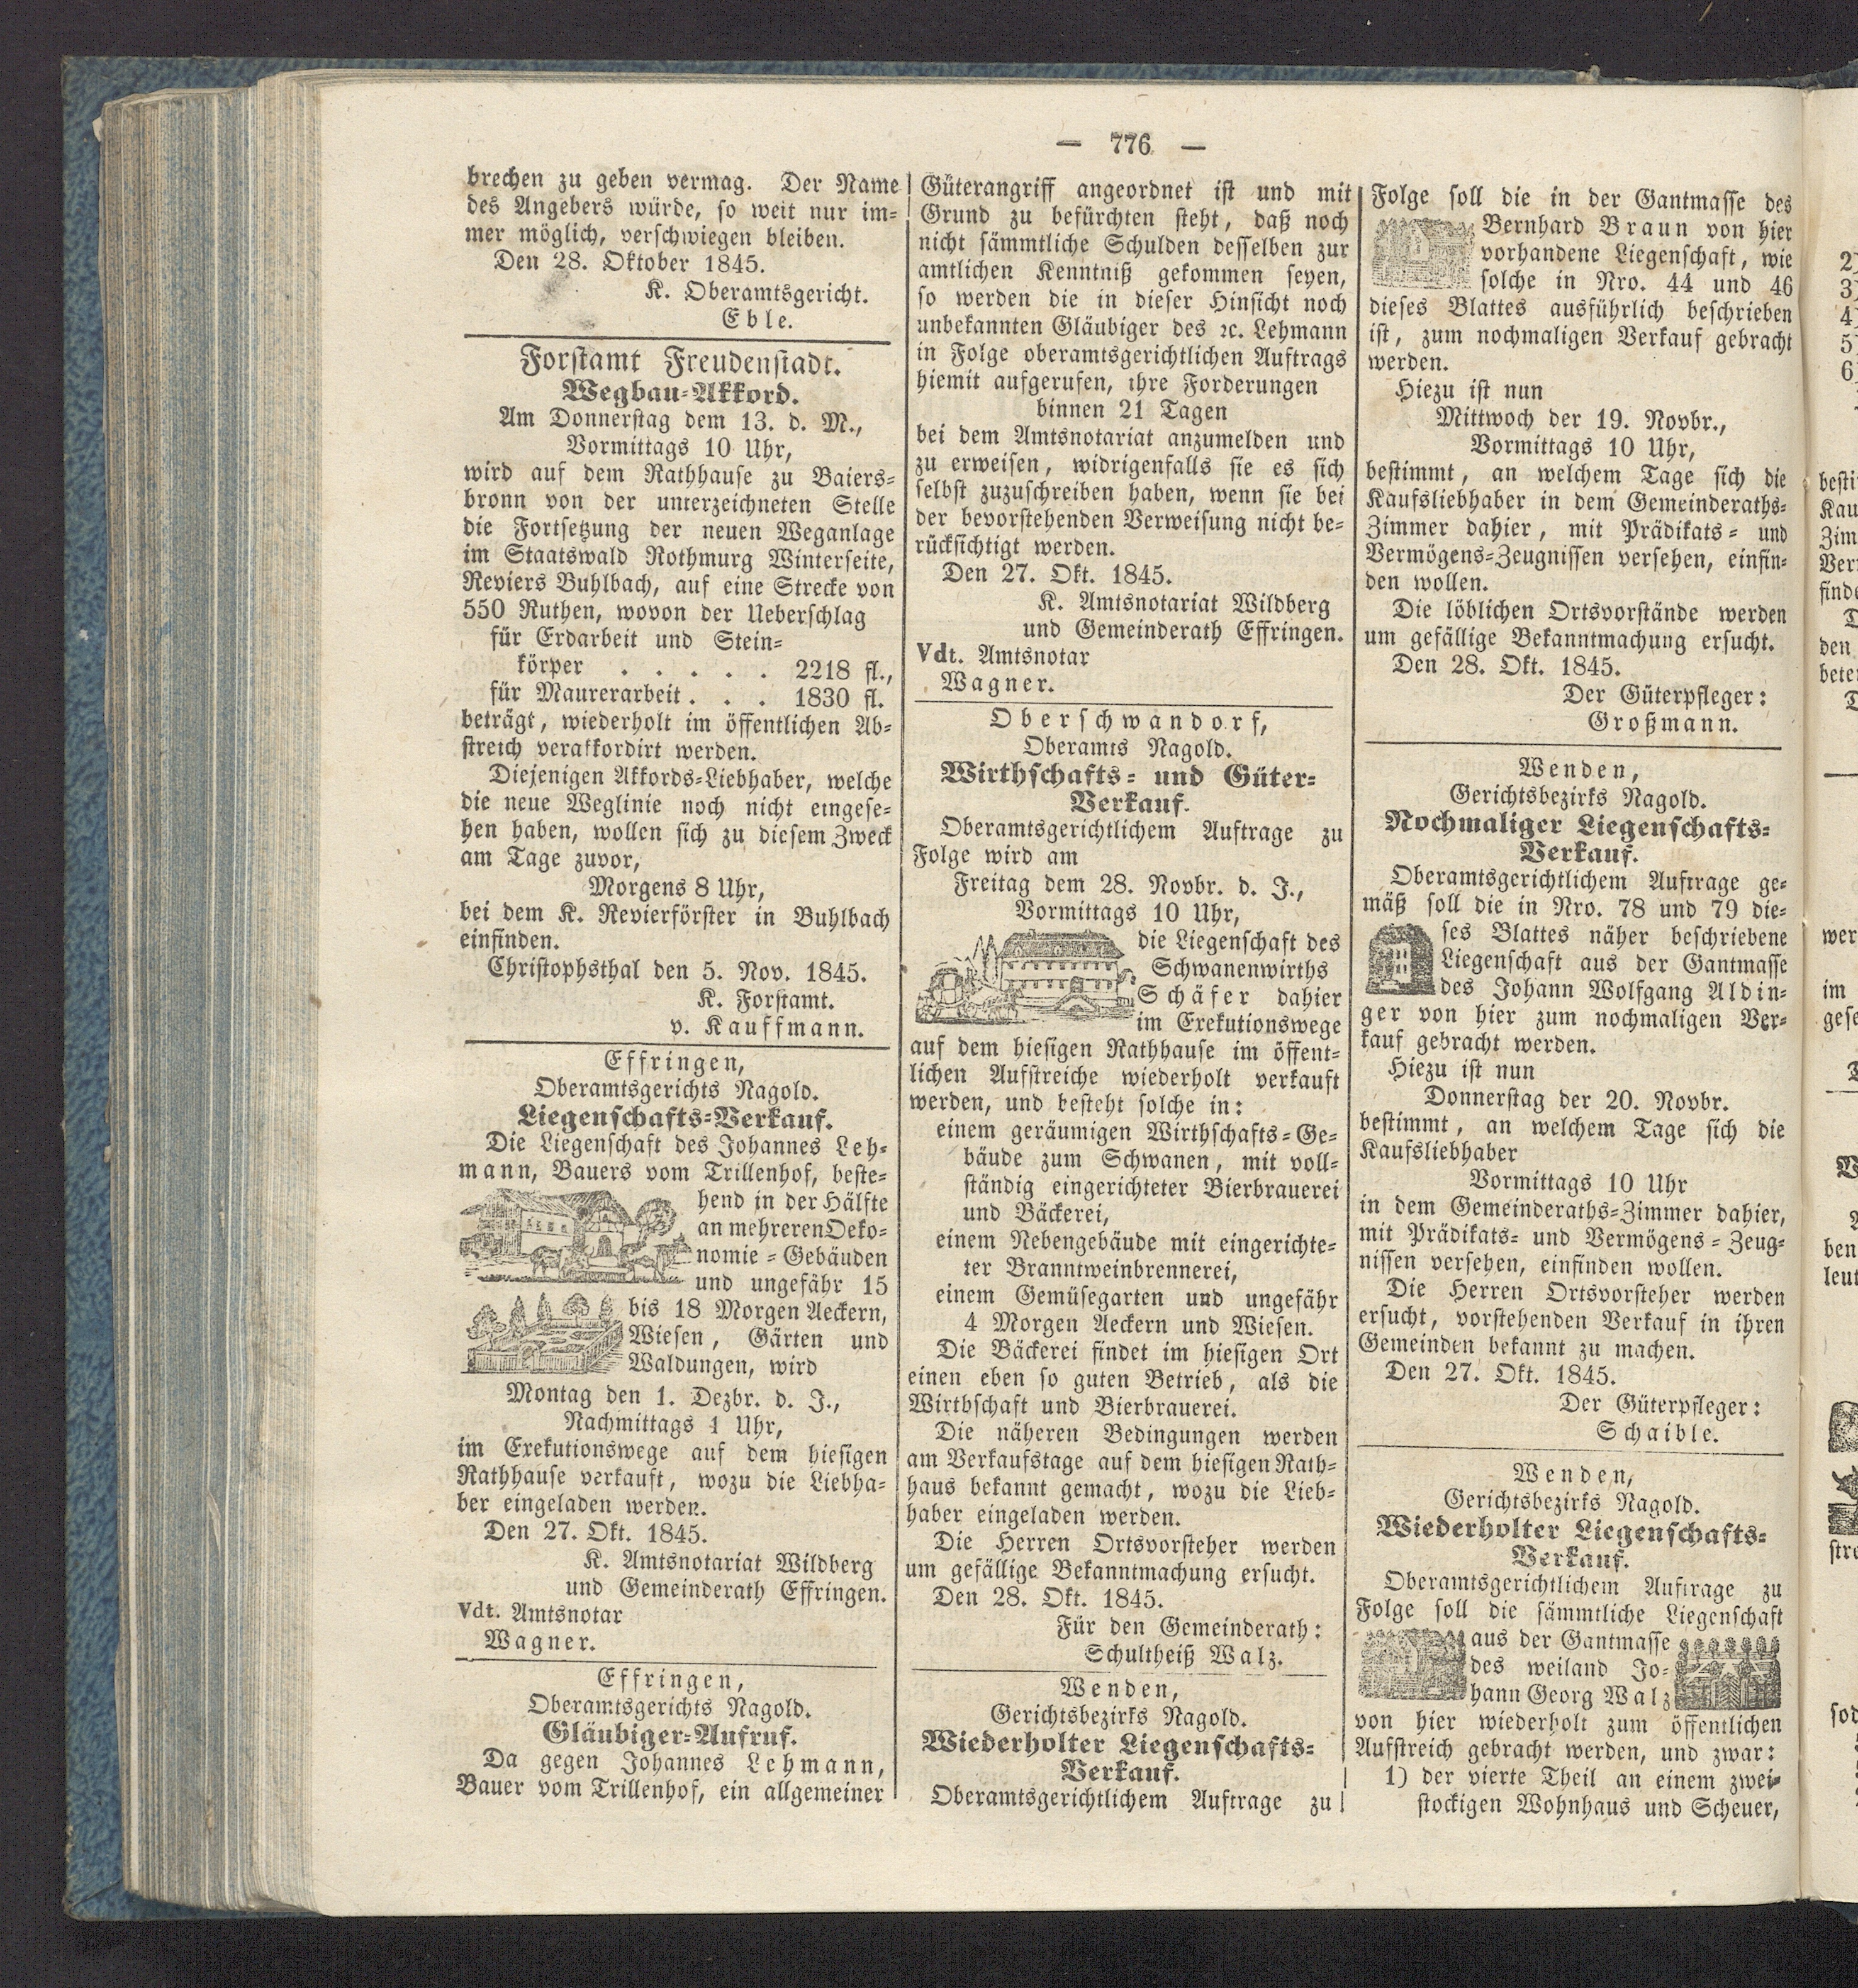 — 776 —
brechen zu geben vermag. Der Name
des Angebers würde, so weit nur im-
mer möglich, verschwiegen bleiben.
Den 28. Oktober 1845.
K. Oberamtsgericht.
Eble.
Forstamt Freudenstadt.
Wegbau-Akkord.
Am Donnerstag dem 13. d. M.,
Vormittags 10 Uhr,
wird auf dem Rathhause zu Baiers-
bronn von der unterzeichneten Stelle
die Fortsetzung der neuen Weganlage
im Staatswald Rothmurg Winterseite,
Reviers Buhlbach, auf eine Strecke von
550 Ruthen, wovon der Ueberschlag
für Erdarbeit und Stein-
körper . . . . . 2218 fl.,
für Maurerarbeit . . . 1830 fl.
beträgt, wiederholt im öffentlichen Ab-
streich verakkordirt werden.
Diejenigen Akkords-Liebhaber, welche
die neue Weglinie noch nicht eingese-
hen haben, wollen sich zu diesem Zweck
am Tage zuvor,
Morgens 8 Uhr,
bei dem K. Revierförster in Buhlbach
einfinden.
Christophsthal den 5. Nov. 1845.
K. Forstamt.
v. Kauffmann.
Effringen,
Oberamtsgerichts Nagold.
Liegenschafts-Verkauf.
Die Liegenschaft des Johannes Leh-
mann, Bauers vom Trillenhof, beste-
hend in der Hälfte
an mehreren Oeko-
nomie-Gebäuden
und ungefähr 15
bis 18 Morgen Aeckern,
Wiesen, Gärten und
Waldungen, wird
Montag den 1. Dezbr. d. J.,
Nachmittags 1 Uhr,
im Exekutionswege auf dem hiesigen
Rathhause verkauft, wozu die Liebha-
ber eingeladen werden.
Den 27. Okt. 1845.
K. Amtsnotariat Wildberg
und Gemeinderath Effringen.
Vdt. Amtsnotar
Wagner.
Effringen,
Oberamtsgerichts Nagold.
Gläubiger-Aufruf.
Da gegen Johannes Lehmann,
Bauer vom Trillenhof, ein allgemeiner
Güterangriff angeordnet ist und mit
Grund zu befürchten steht, daß noch
nicht sämmtliche Schulden desselben zur
amtlichen Kenntniß gekommen seyen,
so werden die in dieser Hinsicht noch
unbekannten Gläubiger des ꝛc. Lehmann
in Folge oberamtsgerichtlichen Auftrags
hiemit aufgerufen, ihre Forderungen
binnen 21 Tagen
bei dem Amtsnotariat anzumelden und
zu erweisen, widrigenfalls sie es sich
selbst zuzuschreiben haben, wenn sie bei
der bevorstehenden Verweisung nicht be-
rücksichtigt werden.
Den 27. Okt. 1845.
K. Amtsnotariat Wildberg
und Gemeinderath Effringen.
Vdt. Amtsnotar
Wagner.
Oberschwandorf,
Oberamts Nagold.
Wirthschafts- und Güter-
Verkauf.
Oberamtsgerichtlichem Auftrage zu
Folge wird am
Freitag dem 28. Novbr. d. J.,
Vormittags 10 Uhr,
die Liegenschaft des
Schwanenwirths
Schäfer dahier
im Exekutionswege
auf dem hiesigen Rathhause im öffent-
lichen Aufstreiche wiederholt verkauft
werden, und besteht solche in:
einem geräumigen Wirthschafts-Ge-
bäude zum Schwanen, mit voll-
ständig eingerichteter Bierbrauerei
und Bäckerei,
einem Nebengebäude mit eingerichte-
ter Branntweinbrennerei,
einem Gemüsegarten und ungefähr
4 Morgen Aeckern und Wiesen.
Die Bäckerei findet im hiesigen Ort
einen eben so guten Betrieb, als die
Wirthschaft und Bierbrauerei.
Die näheren Bedingungen werden
am Verkaufstage auf dem hiesigen Rath-
haus bekannt gemacht, wozu die Lieb-
haber eingeladen werden.
Die Herren Ortsvorsteher werden
um gefällige Bekanntmachung ersucht.
Den 28. Okt. 1845.
Für den Gemeinderath:
Schultheiß Walz.
Wenden,
Gerichtsbezirks Nagold.
Wiederholter Liegenschafts-
Verkauf.
Oberamtsgerichtlichem Auftrage zu
Folge soll die in der Gantmasse des
Bernhard Braun von hier
vorhandene Liegenschaft, wie
solche in Nro. 44 und 46
dieses Blattes ausführlich beschrieben
ist, zum nochmaligen Verkauf gebracht
werden.
Hiezu ist nun
Mittwoch der 19. Novbr.,
Vormittags 10 Uhr,
bestimmt, an welchem Tage sich die
Kaufsliebhaber in dem Gemeinderaths-
Zimmer dahier, mit Prädikats- und
Vermögens-Zeugnissen versehen, einfin-
den wollen.
Die löblichen Ortsvorstände werden
um gefällige Bekanntmachung ersucht.
Den 28. Okt. 1845.
Der Güterpfleger:
Großmann.
Wenden,
Gerichtsbezirks Nagold.
Nochmaliger Liegenschafts-
Verkauf.
Oberamtsgerichtlichem Auftrage ge-
mäß soll die in Nro. 78 und 79 die-
ses Blattes näher beschriebene
Liegenschaft aus der Gantmasse
des Johann Wolfgang Aldin-
ger von hier zum nochmaligen Ver-
kauf gebracht werden.
Hiezu ist nun
Donnerstag der 20. Novbr.
bestimmt, an welchem Tage sich die
Kaufsliebhaber
Vormittags 10 Uhr
in dem Gemeinderaths-Zimmer dahier,
mit Prädikats- und Vermögens-Zeug-
nissen versehen, einfinden wollen.
Die Herren Ortsvorsteher werden
ersucht, vorstehenden Verkauf in ihren
Gemeinden bekannt zu machen.
Den 27. Okt. 1845.
Der Güterpfleger:
Schaible.
Wenden,
Gerichtsbezirks Nagold.
Wiederholter Liegenschafts-
Verkauf.
Oberamtsgerichtlichem Auftrage zu
Folge soll die sämmtliche Liegenschaft
aus der Gantmasse
des weiland Jo-
hann Georg Walz
von hier wiederholt zum öffentlichen
Aufstreich gebracht werden, und zwar:
1) der vierte Theil an einem zwei-
stockigen Wohnhaus und Scheuer,
2)
3)
4)
5)
6)
besti
Kau
Zim
Ver
finde
den
bete
wer
im
gese
ben
leut
stre
sod